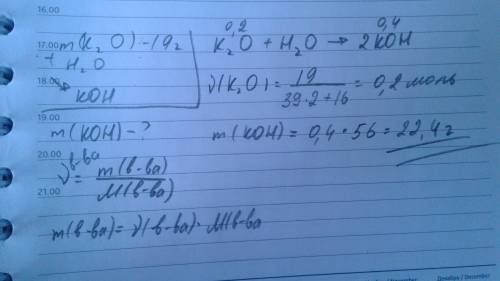 16.00
17.00 m(K₂O) - 19 г
+ H₂O
18.00
→ KOH
19.00
m(KOH) - ?
20.00
ν в-ва = m(в-ва) / M(в-ва)
21.00
m(в-ва) = ν(в-ва) · M(в-ва
0,2 0,4
K₂O + H₂O → 2KOH
ν(K₂O) = 19 / 39·2+16 = 0,2 моль
m(KOH) = 0,4 · 56 = 22,4 г
/ December